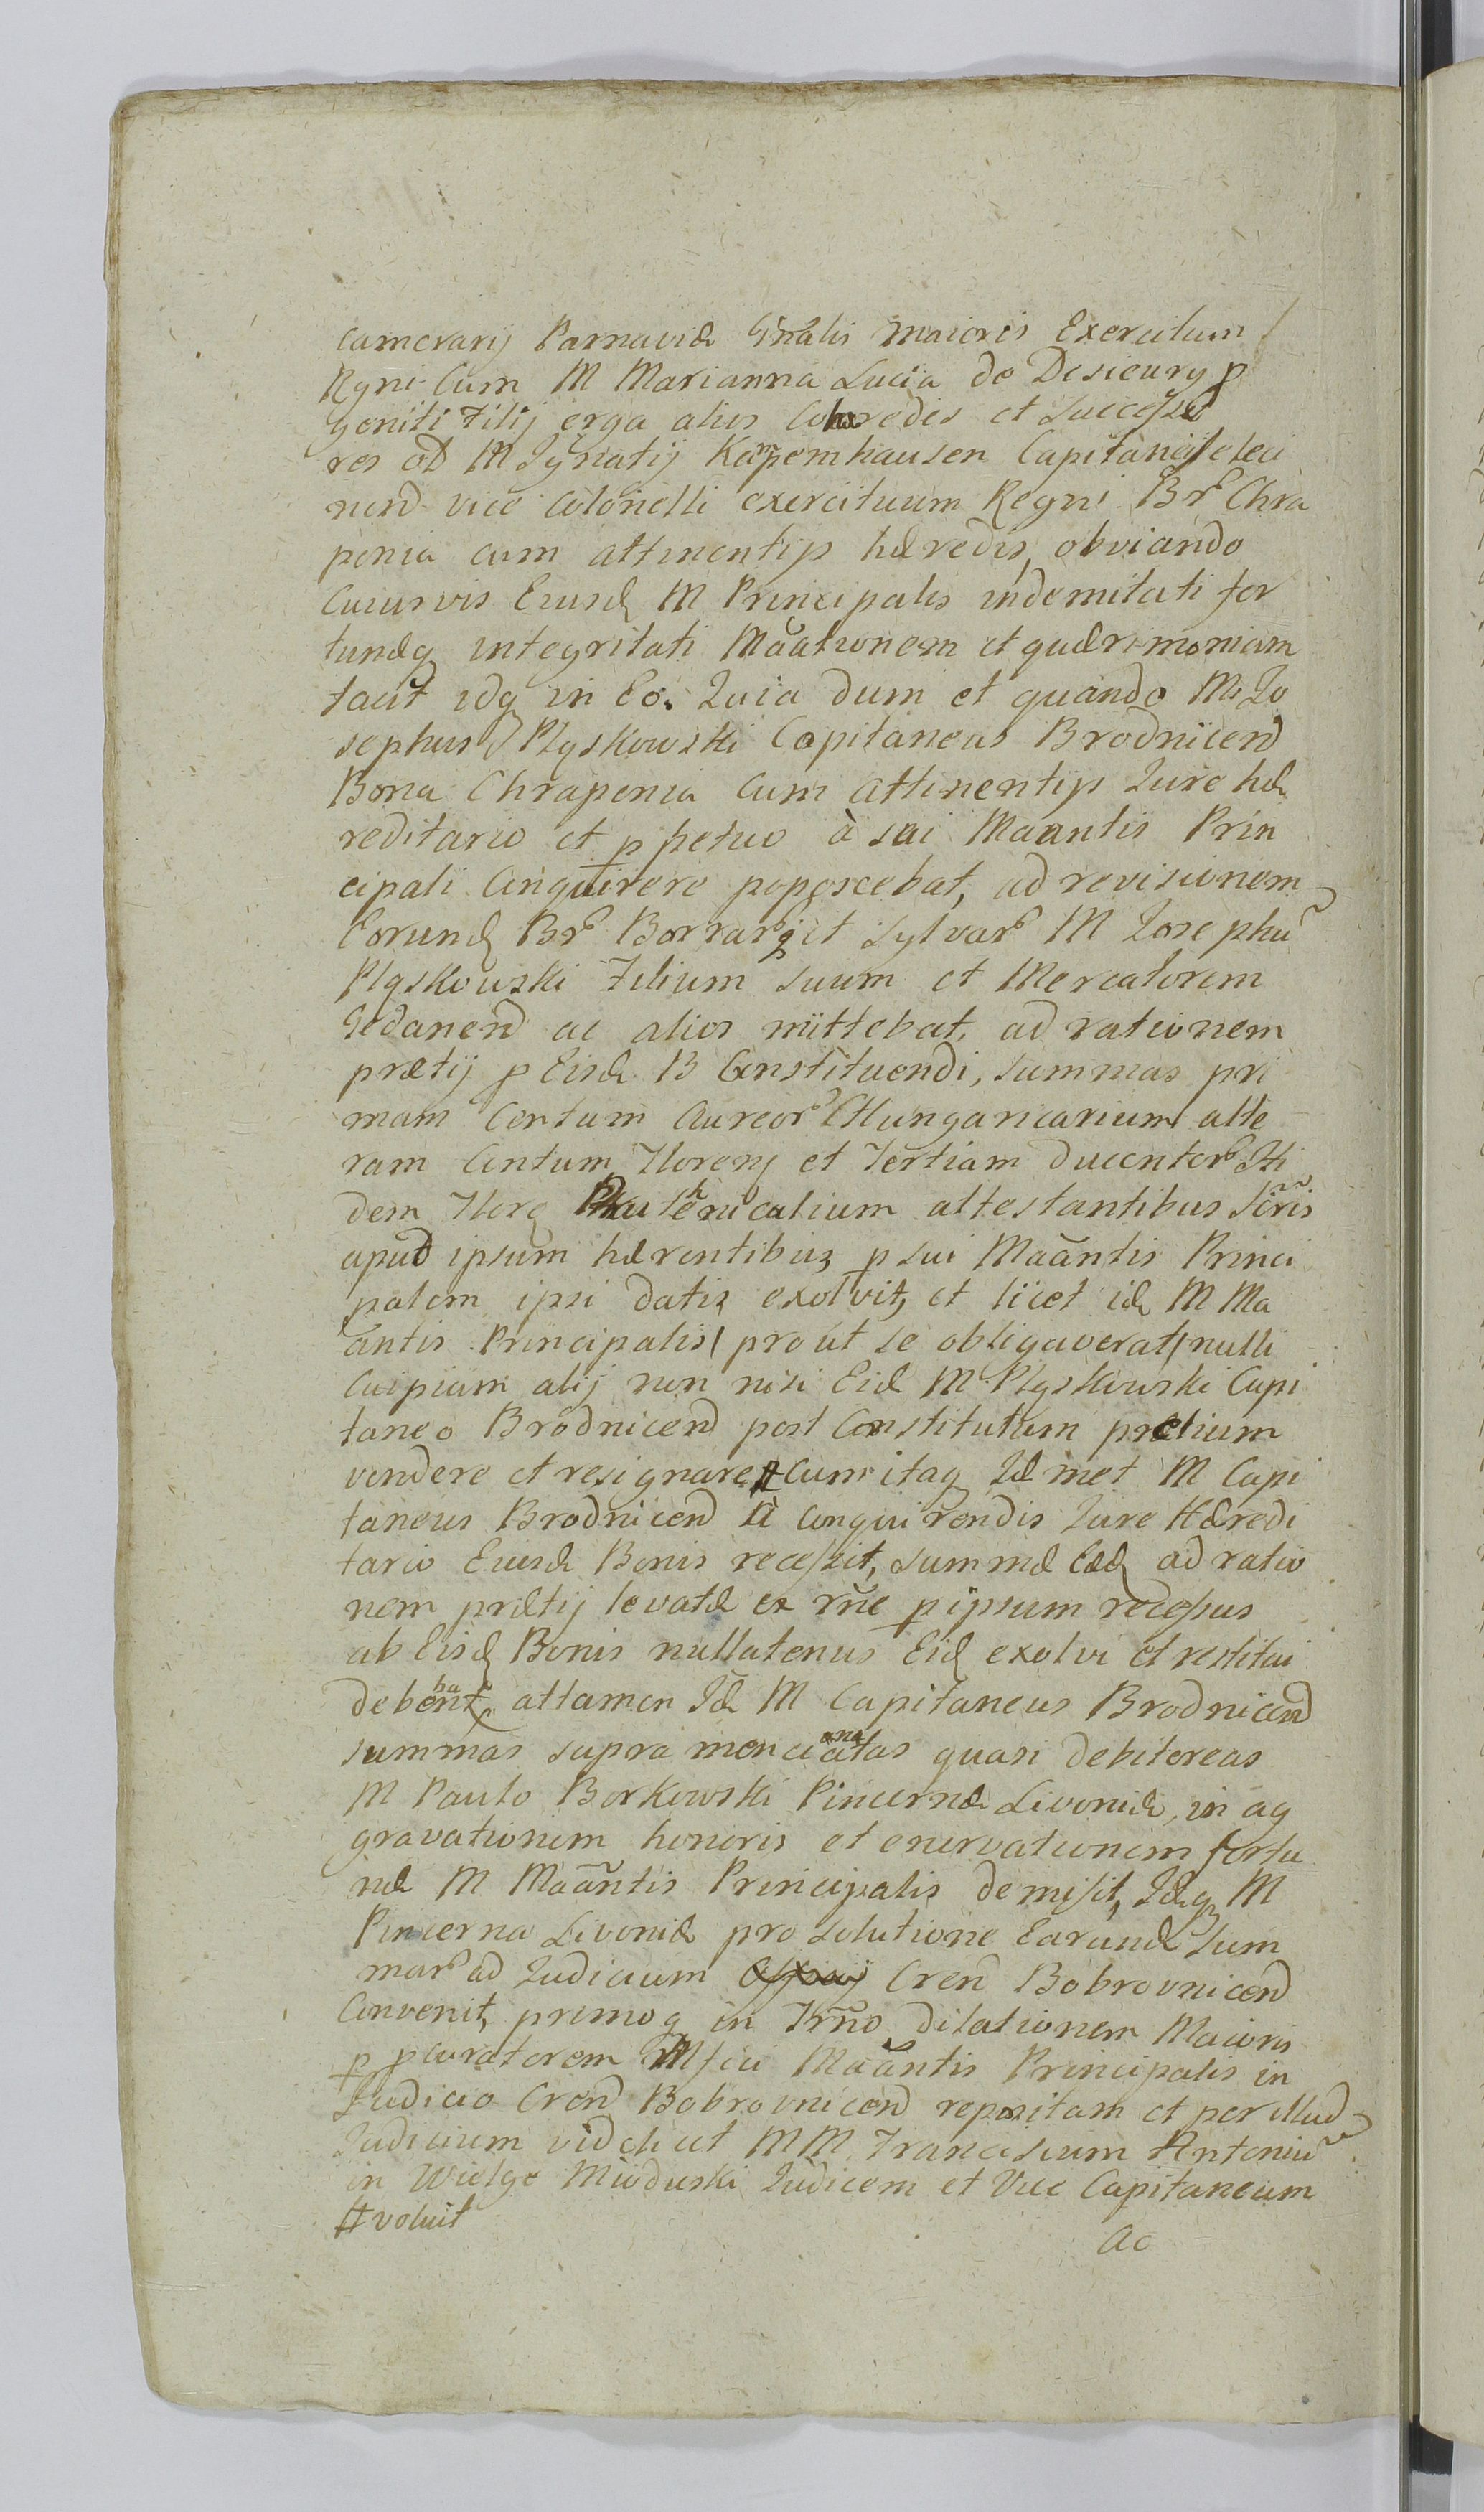 camerarij Parnaviæ Gñalis maioris Exercituum
Rgni Cum M Marianna Lucia de Desieury p
geniti Filij erga alius Cohæredes et Successo
res oD M Ignatij Kampemhausen Capitanei
nenD vice Colonelli exercituum Regni Br Chra
penia cum attinentijs hæredis, obviando
Cuiusvis Eiusd M Principalis indemitati for
tunæq integritati Mãationem et quærimoniam
facit idq in Eo. Quia dum et quando M Jo
sephus Plyskowski Capitaneus BrodnicenD
Bona Chrapenia Cum attinentijs Jure hæ
reditario et ppetuo à sui Maantis Prin
cipali Conquirere poposcebat, ad revisionem
Eorund Br Borrarq et Sylvar M Josephũ
Plyskowski Filium suum et Mercatorem
GedanenD ac alios mittebat, ad rationem
prætij p Eisd B Constituendi, summas pri
mam Centum Aureor Hungaricarium alte
ram Centum Floreng et Tertiam Ducentor Iti
dem Flore Rhuthenicalium attestantibus Scrīs
apud ipsum hærentibus p sui Maãntis Princi
palem ipsi datis exolvit, et licet id M Ma
ãntis Principalis prout se obligaverat nulli
Cuipiam alij non nisi Eid M Plyskowski Capi
taneo BrodnicenD post Constitutum prætium
vendere et resignare # Cum itaq Idmet M Capi
taneus BrodnicenD à Conquirendis Jure Hæredi
tario Eiusd Bonis recessit, summæ Eæd ad ratio
nem prætij levatæ ex rñe p ipsum recessus
ab Eisd Bonis nullatenus Eid exolvi et restitui
debebant, attamen Id M Capitaneus BrodnicenD
summas supra mencionatas quasi debitoreas
M Paulo Borkowski Pincernæ Livoniæ, in ag
gravationem honoris et enervationem fortu
næ M Maãntis Principalis demisit, Idq M
Pincerna Livoniæ pro solutione Earund Sum
mar ad Judicium CrenD BobrovnicenD
Convenit, primoq in Trño dilationem Maioris
p pcuratorem M sui Maãntis Principalis in
Judicio CrenD BobrovnicenD repositam et per illud
Judicium videlicet MM Franciscum Antoniũ
in Wielge Mioduski Judicem et Vice Capitaneum
# voluit
ac